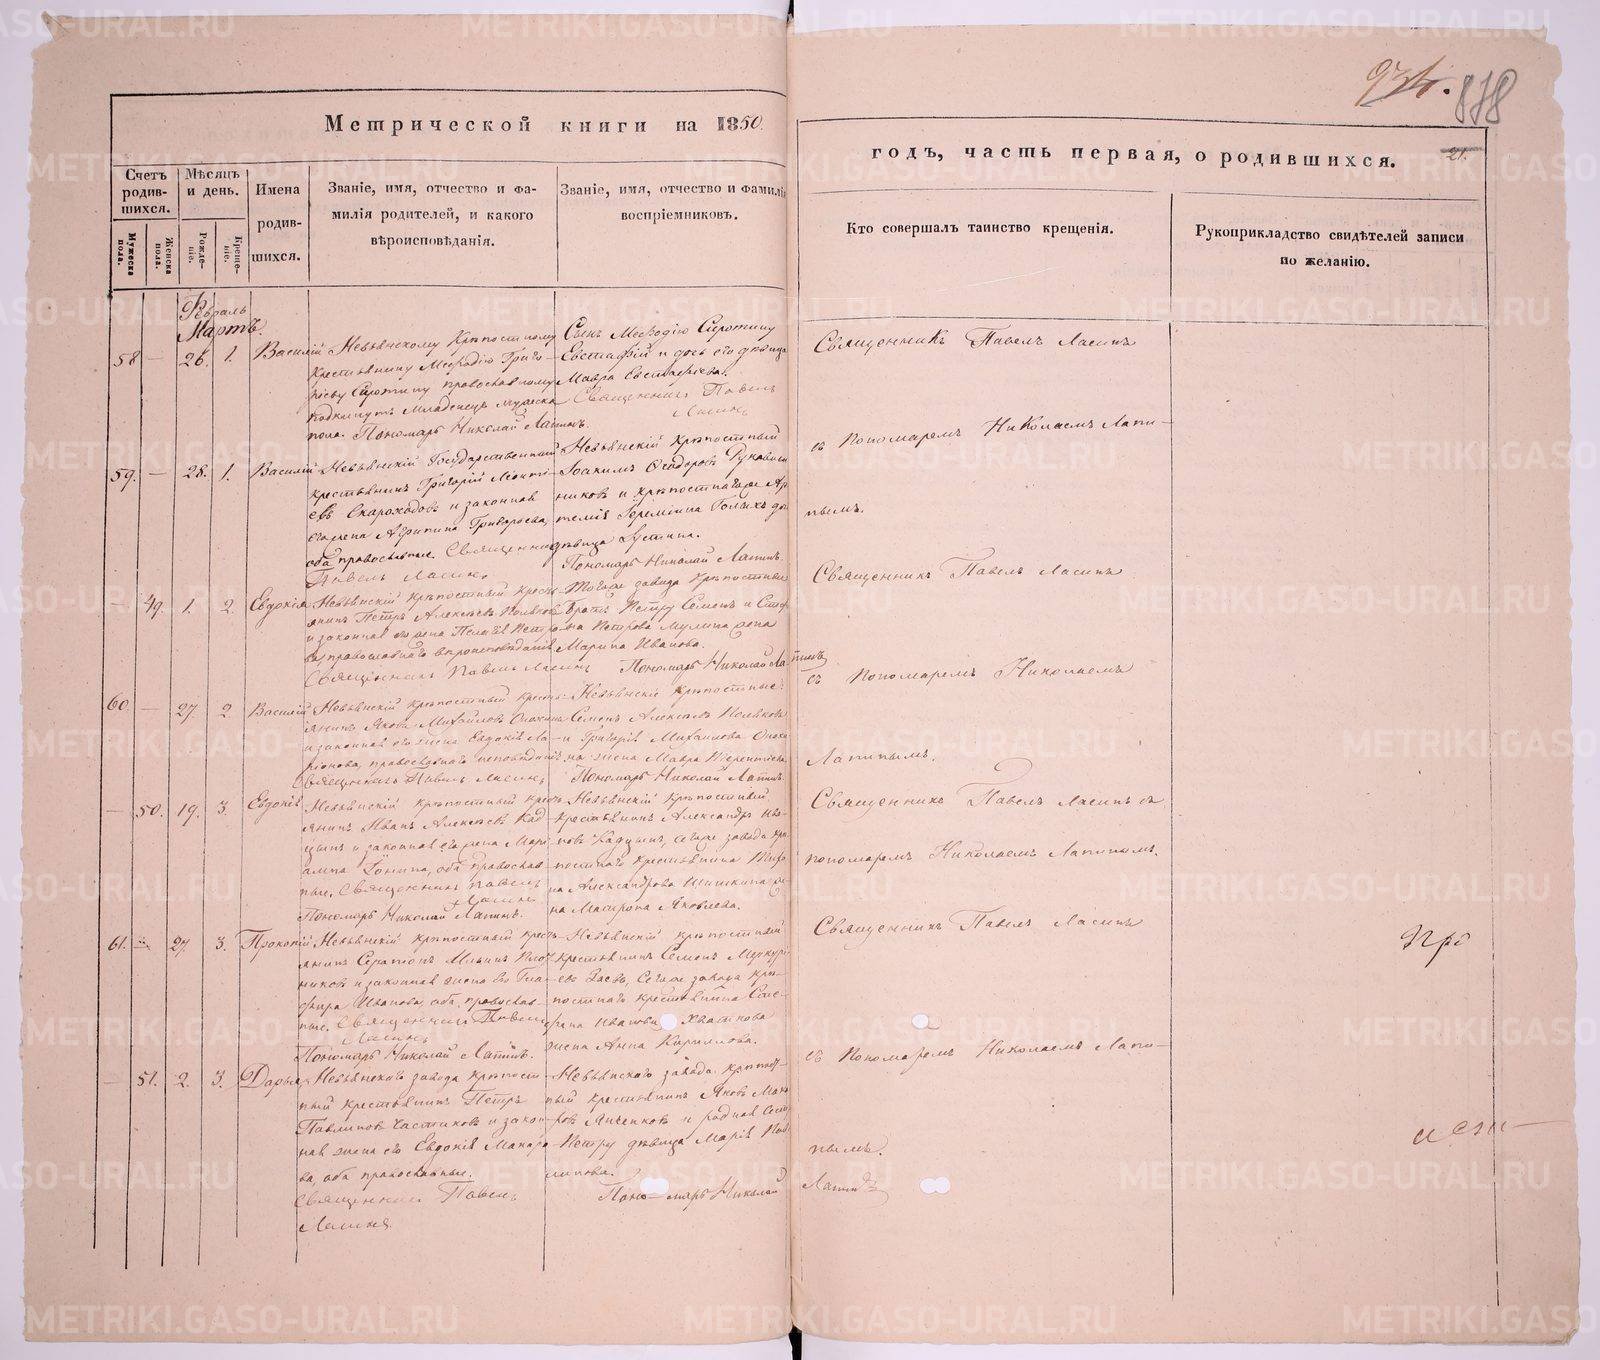 934. 878
Метрической книги на 1850.
годъ, часть первая, о родившихся. 21.
Счетъ родив-шихся.
Мѣсяцъ и день.
Имена родив-шихся.
Званіе, имя, отчество и фа-
милія родителей, и какого
вѣроисповѣданія.
Званіе, имя, отчество и фамилія
воспріемниковъ.
Кто совершалъ таинство крещенія.
Рукоприкладство свидѣтелей записи
по желанію.
Мужеска пола.
Женска пола.
Рожде-ніе.
Креще-ніе.
Февраль
Мартъ.
58 — 26. 1. Василій
Невьянскому Крѣпостному
крестьянину Меѳодію Григо-
рьеву Сиротину православному
подкинутъ младенецъ мужеска
пола. Пономарь Николай Лапинъ.
Сынъ Меѳодію Сиротину
Евстафій и дочь его дѣвица
Мавра Евстафіева.
Священникъ Павелъ
Ласинъ
Священникъ Павелъ Ласинъ
съ Пономаремъ Николаемъ Лапи-
нымъ.
59. — 28. 1. Василій
Невьянскій Государственный
крестьянинъ Григорій Леонті-
евъ Скороходовъ и законная
его жена Афипина Григорьева,
оба православные. Священникъ
Павелъ Ласинъ
Невьянскій крѣпостный
Іоакимъ Ѳеодоровъ Рукавиш
никовъ и крѣпостнаго же Ар
темія Іереміина Голыхъ дочь
дѣвица Іустина.
Пономарь Николай Лапинъ.
— 49. 1. 2. Евдокія
Невьянскій крѣпостный кресть
янинъ Петръ Алексѣевъ Поляковъ
и законная его жена Пелагея Петро-
ва, православнаго вѣроисповѣданія
Священникъ Павелъ Ласинъ
Тогоже завода крѣпостные
Братъ Петру Семенъ и Стеф
на Петрова Мулина жена
Марина Иванова.
Пономарь Николай Ла-пинъ
Священникъ Павелъ Ласинъ
съ Пономаремъ Николаемъ
Лапинымъ.
60. — 27 2 Василій
Невьянскій крѣпостный кресть-
янинъ Яковъ Михайловъ
и законная его жена Евдокія Ла-
ріонова, православнаго исповѣданія
Священникъ Павелъ Ласинъ
Невьянскіе крѣпостные:
Семенъ Алексѣевъ Поляковъ
и Григорія Михайлова
на жена Мавра Терентьева
Пономарь Николай Лапинъ.
— 50. 19. 3. Евдокія
Невьянскій крѣпостный кресть-
янинъ Иванъ Алексѣевъ Кад
цынъ и законная его жена Мари
амна Іонина, оба православ
ные. Священникъ Павелъ
Ласинъ
Пономарь Николай Лапинъ.
Невьянскій крѣпостный
крестьянинъ Александръ Ива
новъ Кадцынъ, сегоже завода крѣ
постнаго крестьянина Тихо
на Александрова Шишкина же
на Матрона Яковлева.
Священникъ Павелъ Ласинъ съ
пономаремъ Николаемъ Лапинымъ.
61. — 27. 3. Прокопій
Невьянскій крѣпостный кресть
янинъ Серапіонъ Ильинъ Плот
никовъ и законная жена его Гла
фира Иванова, оба православ-
ные. Священникъ Павелъ
Ласинъ
Пономарь Николай Лапинъ.
Невьянскій крѣпостный
крестьянинъ Семенъ Меркурі-
евъ Заевъ, Сегоже завода крѣ-
постнаго крестьянина Сте-
фана Иванова Хваткова
жена Анна Кириллова.
Священникъ Павелъ Ласинъ
съ Пономаремъ Николаемъ Лапи-
нымъ.
— 51. 2. 3. Дарья
Невьянского завода крѣпост
ный крестьянинъ Петръ
Павлиновъ Частиковъ и закон
ная жена его Евдокія Макаро
ва, оба православные.
Священникъ Павелъ
Ласинъ
Невьянскаго завода крѣпост-
ный крестьянинъ Яковъ Мака
ровъ Янченковъ и родная сест
Петру дѣвица Марія Пав
линова.
Пономарь Николай Лапинъ